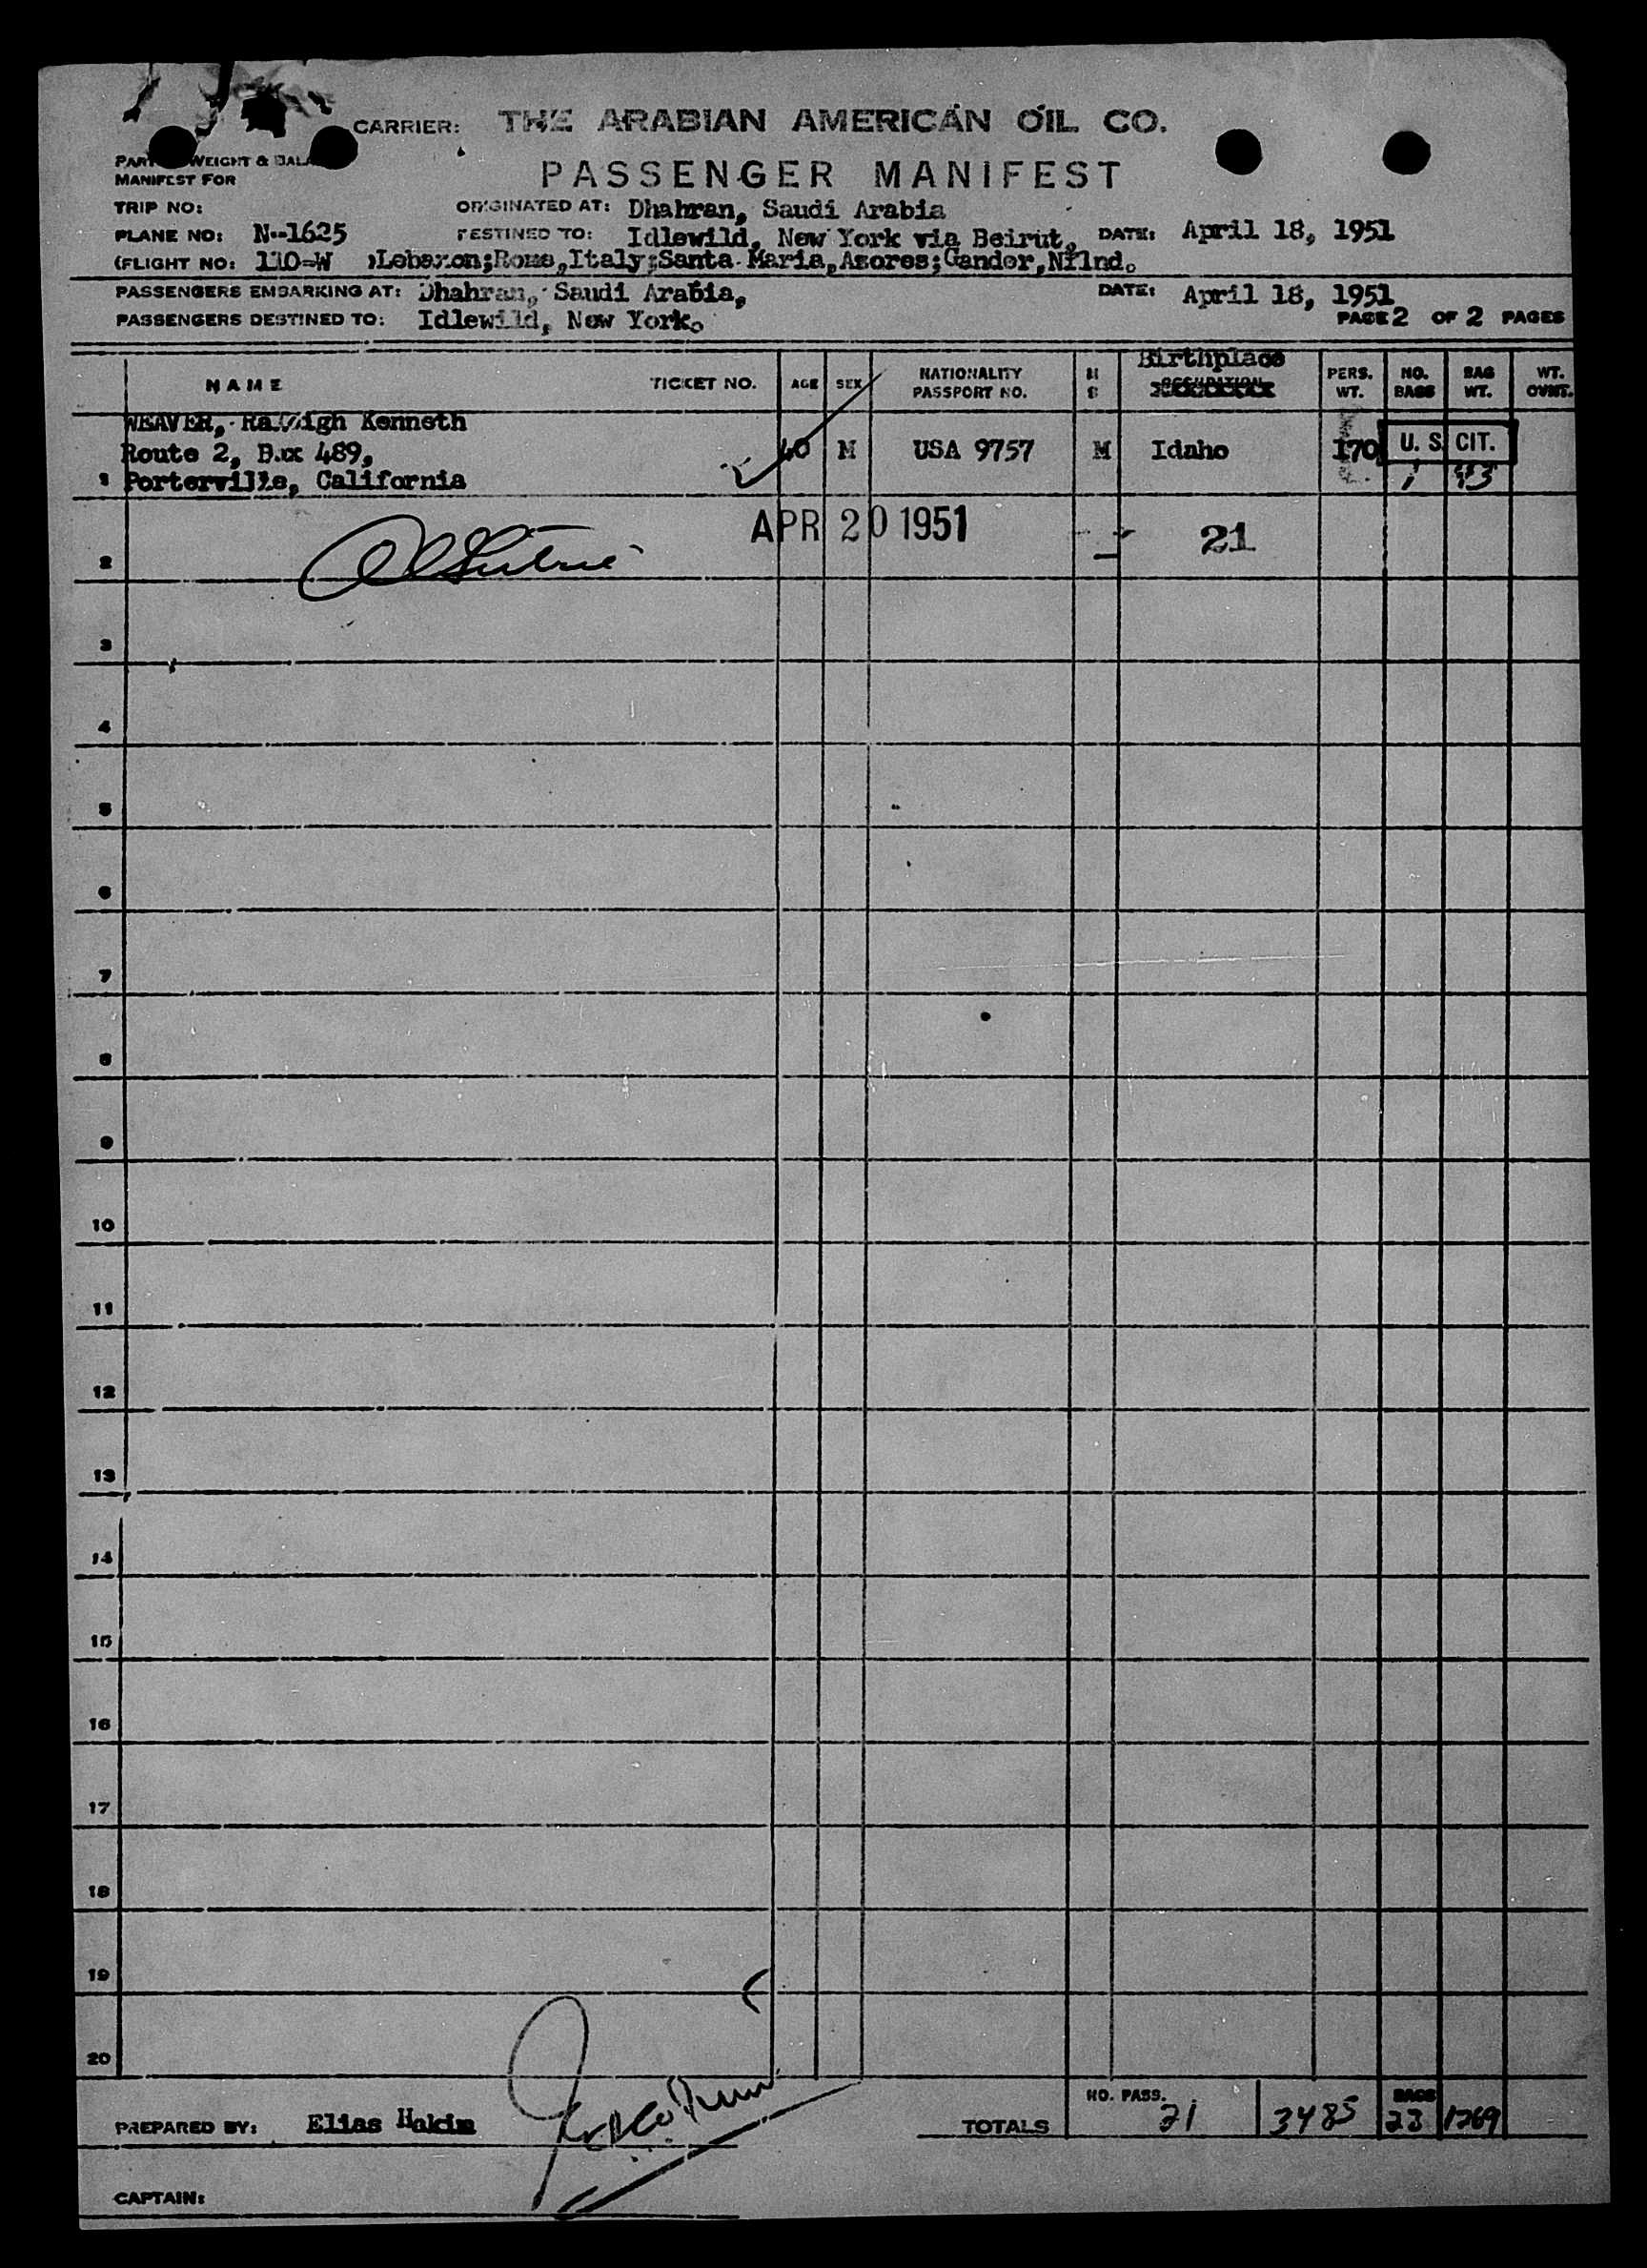 CARRIER: THE ARABIAN AMERICAN OIL CO.
WEIGHT &
MANIFEST FOR
PASSENGER MANIFEST
TRIP NO:
ORIGINATED AT: Dhahran, Saudi Arabia
PLANE NO: N-1625
DESTINED TO: Idlewild, New York via Beirut, DATE: April 18, 1951
(FLIGHT NO: 110-W )Lebanon;Rome,Italy;Santa Maria,Azores;Gander,Nflnd.
PASSENGERS EMBARKING AT: Dhahran, Saudi Arabia, DATE: April 18, 1951
PASSENGERS DESTINED TO: Idlewild, New York. PAGE 2 OF 2 PAGES
NAME TICKET NO. AGE SEX NATIONALITY PASSPORT NO. M S Birthplace PERS. WT. NO. BAGS BAG WT. WT. OVWT.
WEAVER, Raleigh Kenneth
Route 2, Box 489, 40 M USA 9757 M Idaho 170 U. S. CIT.
1 Porterville, California 1
APR 20 1951 21
2
3
4
5
6
7
8
9
10
11
12
13
14
15
16
17
18
19
20
PREPARED BY: Elias Hakim
TOTALS NO. PASS. 21 3485 BAGS 23 1269
CAPTAIN: